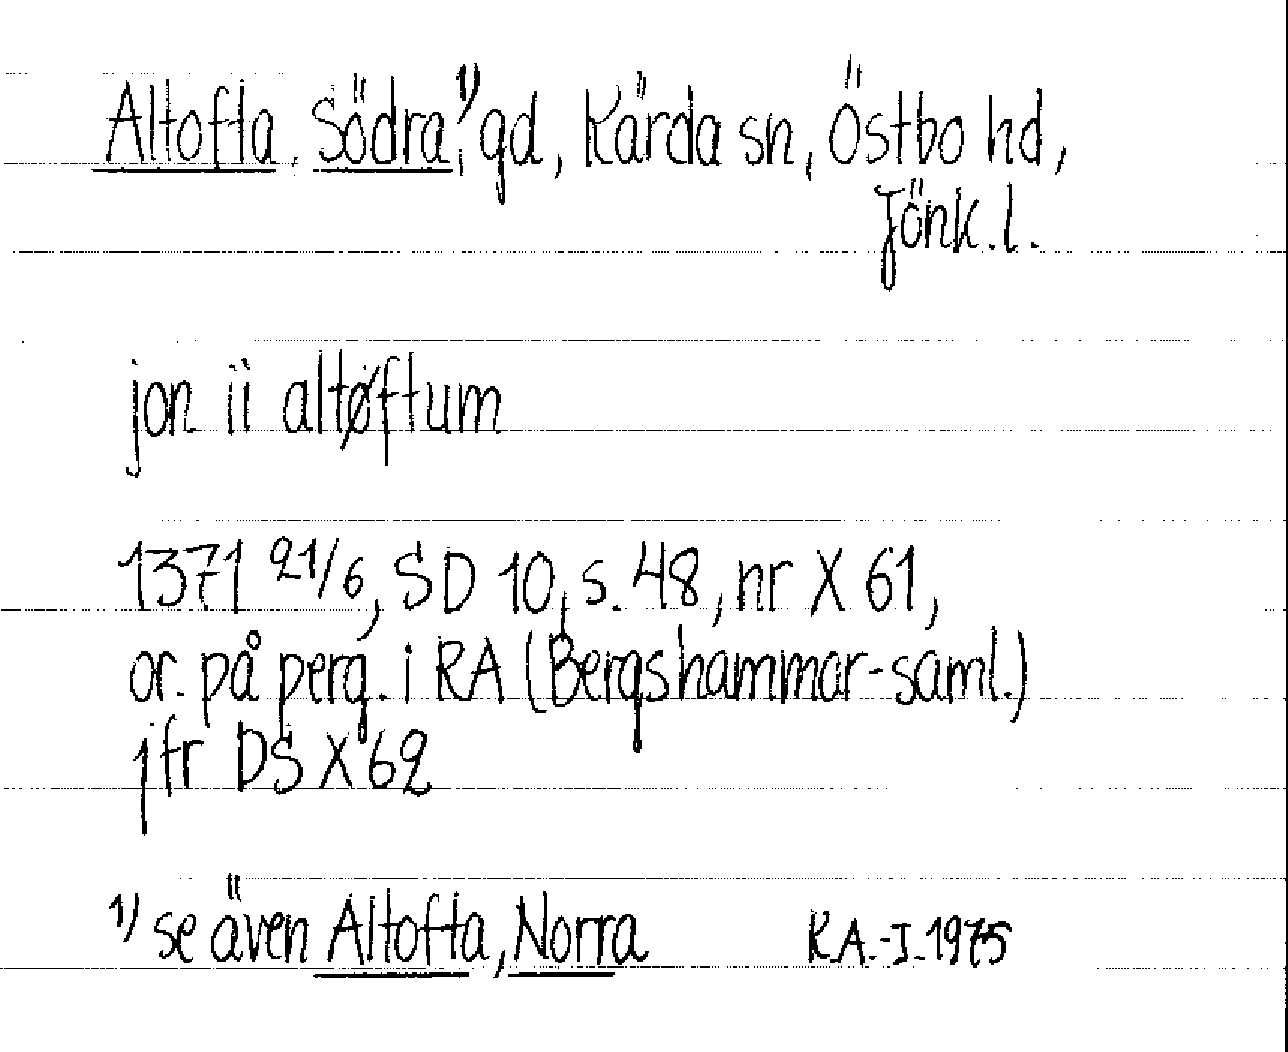 Altofta, Södra,¹⁾ gd, Kärda sn, Östbo hd,
Jönk. l.
jon ii altøftum
1371 21/6, SD 10, s. 48, nr X 61,
or. på perg. i RA (Bergshammar-saml.)
jfr DS X 62
¹⁾ se även Altofta, Norra
R.A.-J. 1975